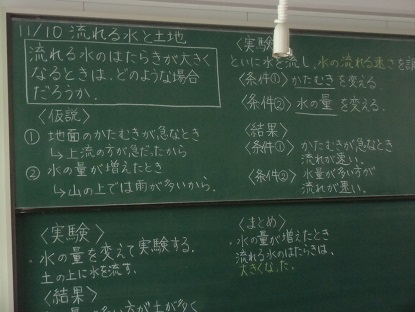 11/10 流れる水と土地
流れる水のはたらきが大きく
なるときは、どのような場合
だろうか。
〈仮説〉
① 地面のかたむきが急なとき
↳上流の方が急だったから
② 水の量が増えたとき
↳山の上では雨が多いから.
〈実験
といに水を流し、水の流れる速さを
〈条件①〉かたむきを変える
〈条件②〉水の量を変える.
〈結果〉
〈条件①〉かたむきが急なとき
流れが速い.
〈条件②〉水量が多い方が
流れが速い.
〈実験〉
・水の量を変えて実験する.
土の上に水を流す.
〈結果〉
多い方が土が多く
〈まとめ〉
・水の量が増えたとき
流れる水のはたらきは、
大きくなった.